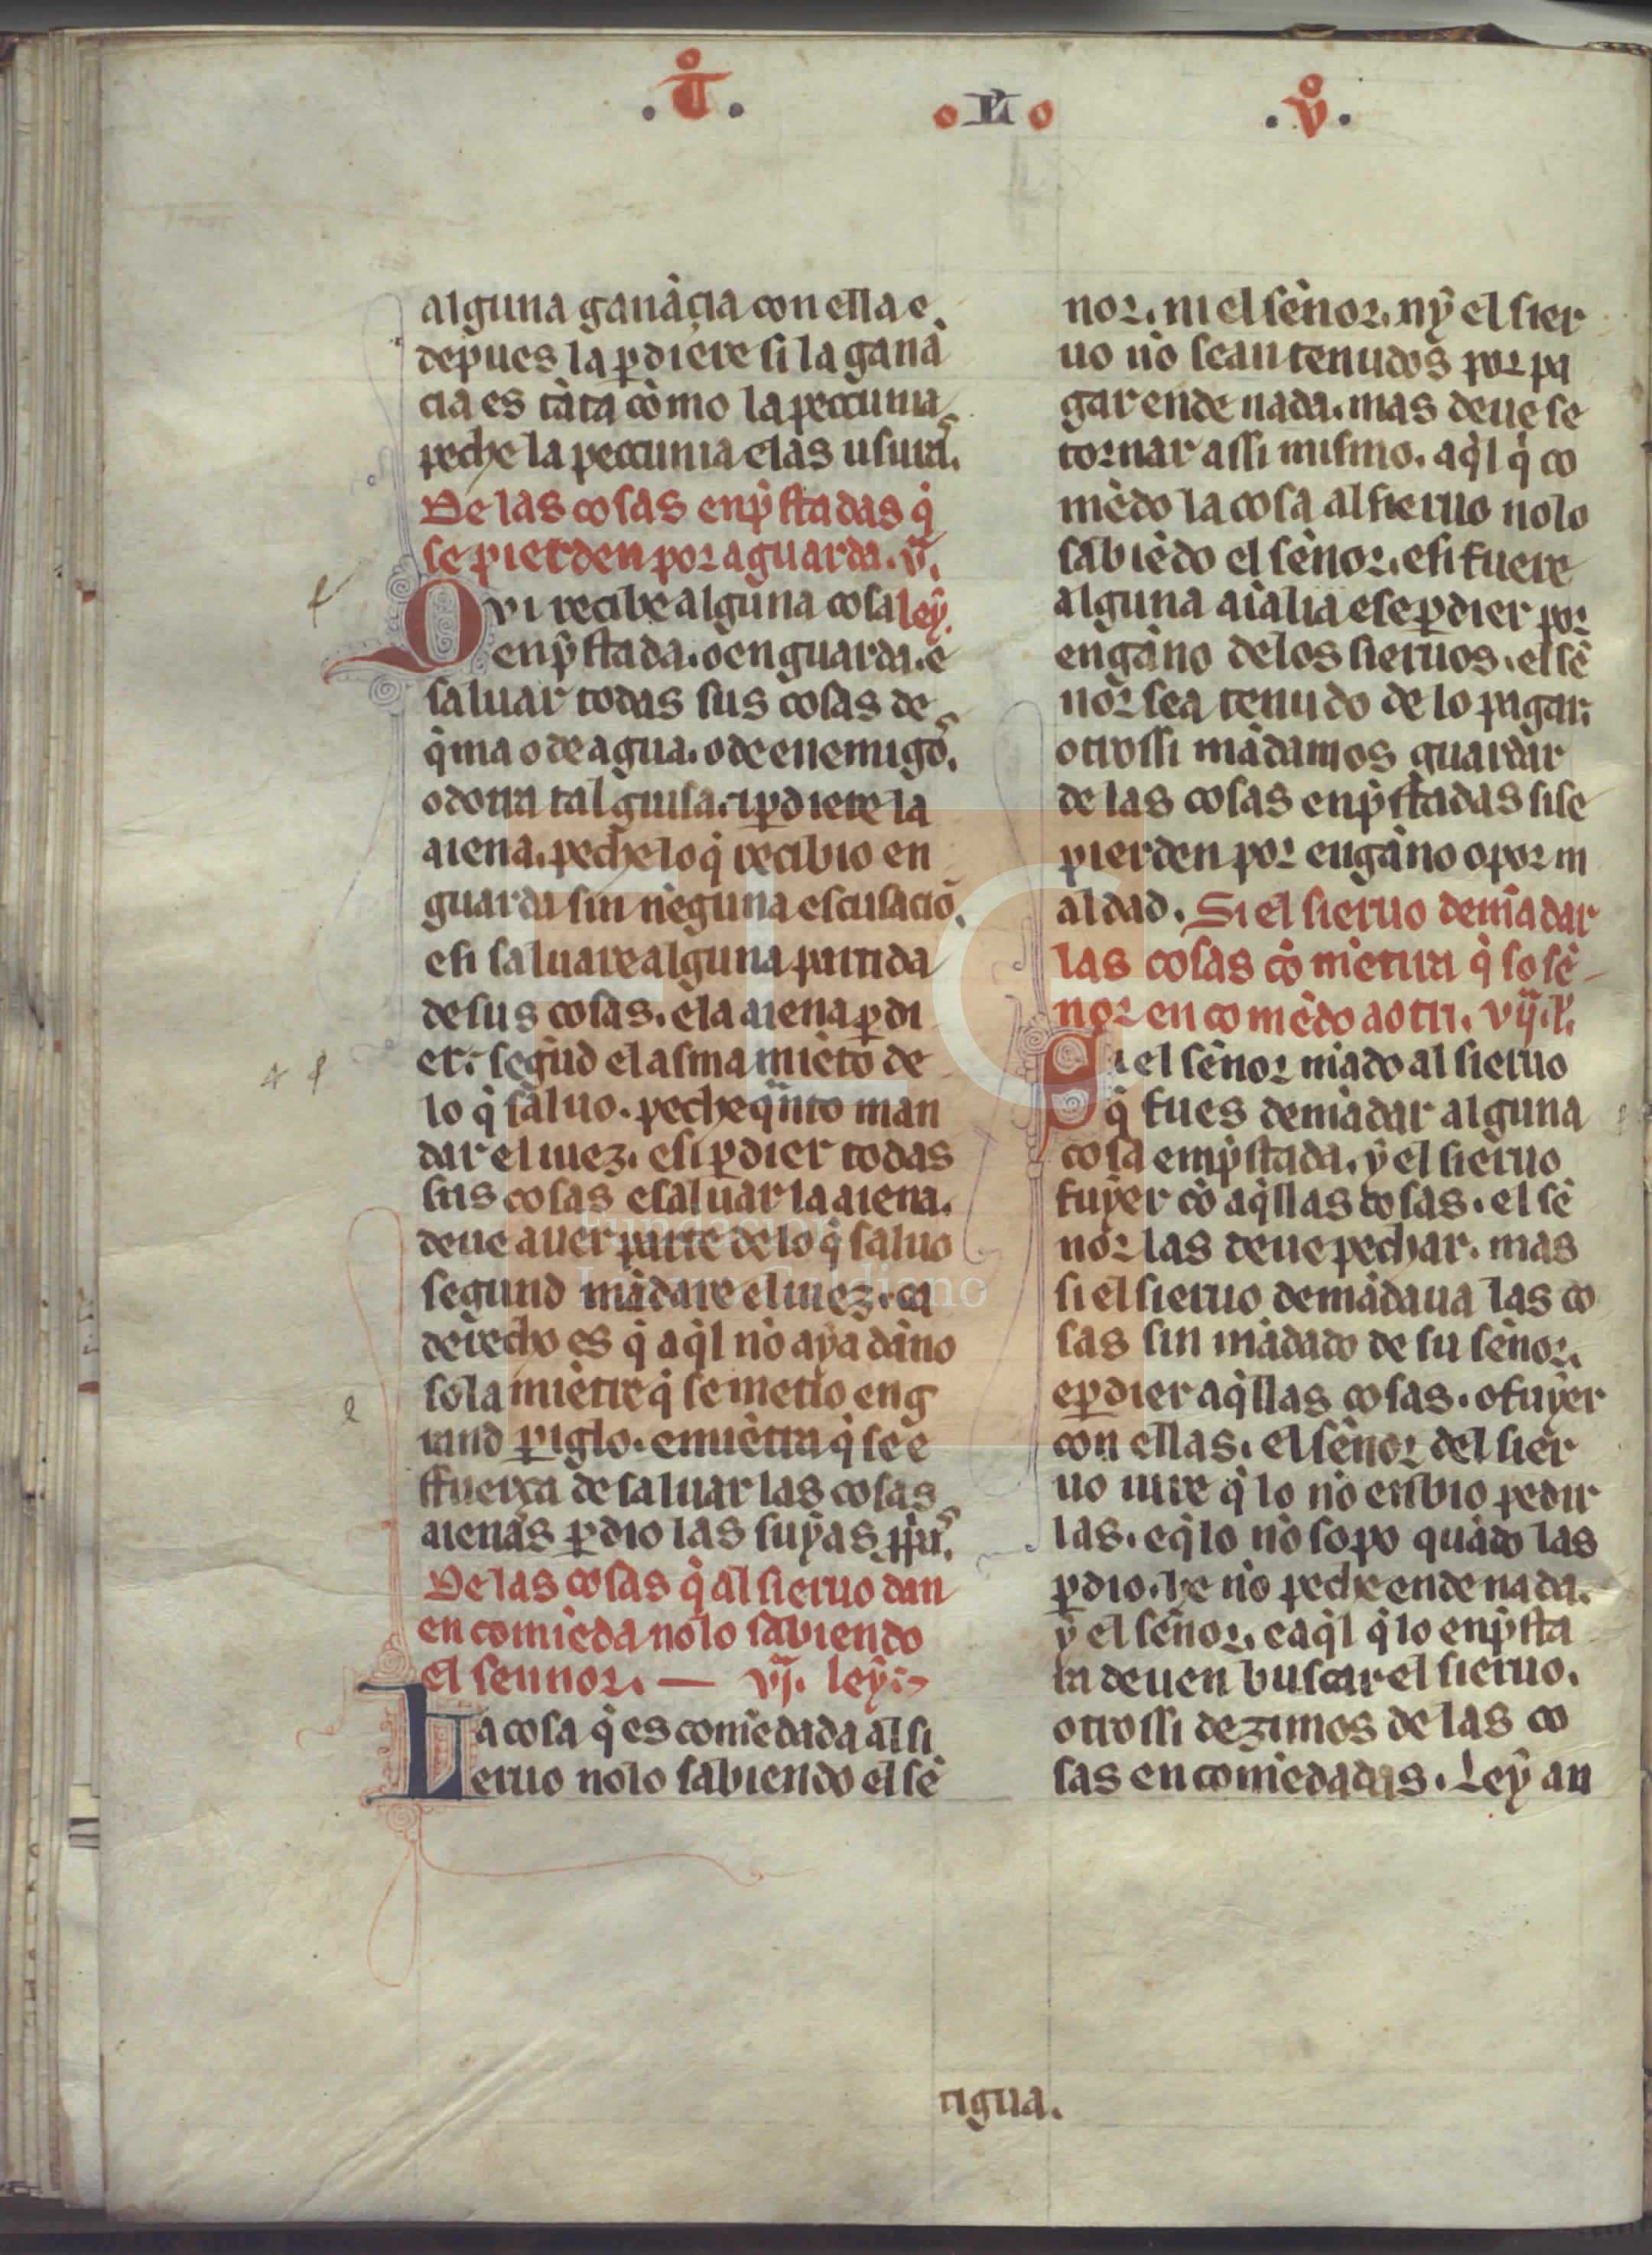 .T̊. o L̃ o .v̊.
alguna ganãcia con ella e
depues la ꝑdiere si la ganã
cia es tãta cõmo la peccunia
peche la peccunia e las usuras.
De las cosas enp̃stadas q̃
se pierden por aguarda. v.
QVi recibe alguna cosa ley.
enp̃stada. o en guarda. e
saluar todas sus cosas de
q̃ma o de agua. o de enemigos.
o dotra tal guisa. ⁊ ꝑdiere la
aiena. peche lo q̃ recibio en
guarda sin neguna escusaciõ.
e si saluare alguna partida
de sus cosas. e la aiena ꝑdi
er. segũd el asmamiẽto de
lo q̃ saluo. peche quãto man
dar el iuez. e si ꝑdier todas
sus cosas e saluar la aiena.
deue auer parte de lo q̃ saluo
segund mãdare el iuez. ca
derecho es q̃ aq̃l nõ aya dãno
sola miẽtre q̃ se metio en g
rand ꝑiglo. e miẽtra q̃ se e
ffuerça de saluar las cosas
aienas ꝑdio las suyas
De las cosas q̃ al sieruo dan
en comiẽda nolo sabiendo
el sennor. — vj. ley.
La cosa q̃ es comẽdada al si
eruo nolo sabiendo el sẽ
nor. ni el sẽnor. nỹ el sier
uo nõ sean tenudos por pa
gar ende nada. mas deue se
tornar assi mismo. aq̃l q̃ co
mẽdo la cosa al sieruo nolo
sabiẽdo el sẽnor. e si fuere
alguna aialia e se ꝑdier por
engãno delos sieruos. el sẽ
nor sea tenudo de lo pagar.
otrossi mãdamos guardar
de las cosas enp̃stadas si se
pierden por engãno o por m
aldad. Si el sieruo demãdar
las cosas cõ mẽtira q̃ so sẽ
nor encomẽdo a otri. vij. l.
Si el sẽnor mãdo al sieruo
q̃ fues demãdar alguna
cosa emp̃stada. ỹ el sieruo
fuyer cõ aq̃llas cosas. el sẽ
nor las deue pechar. mas
si el sieruo demãdaua las co
sas sin mãdado de su sẽnor.
e ꝑdier aq̃llas cosas. o fuyer
con ellas. el sẽnor del sier
uo iure q̃ lo nõ enbio pedir
las. e q̃ lo nõ sopo quãdo las
ꝑdio. ⁊ nõ peche ende nada.
ỹ el sẽnor. e aq̃l q̃ lo enp̃sta
ra deuen buscar el sieruo.
otrossi dezimos de las co
sas encomẽdadas. Leỹ an
tigua.
Fundación
Lázaro Galdiano